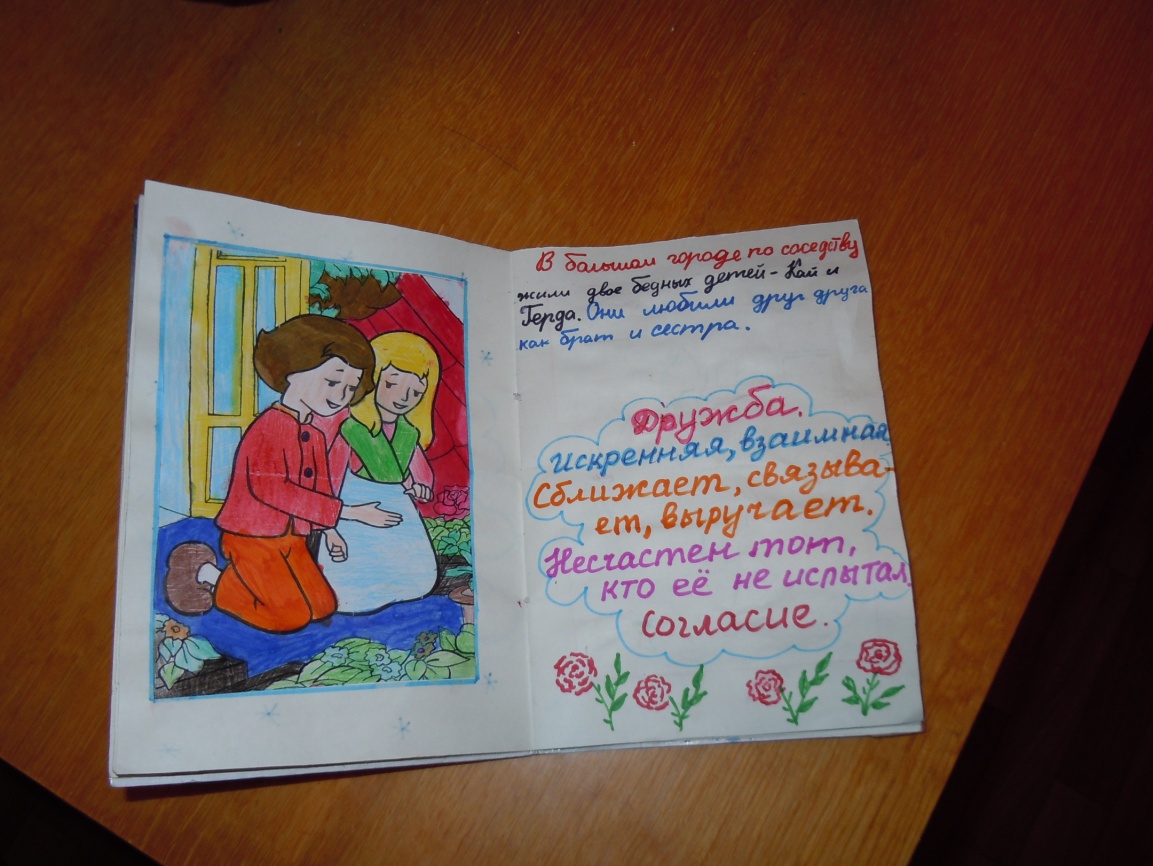 В большом городе по соседству
жили двое бедных детей - Кай и
Герда. Они любили друг друга
как брат и сестра.
Дружба.
Искренняя, взаимная
Сближает, связыва-
ет, выручает.
Несчастен тот,
кто её не испытал.
Согласие.